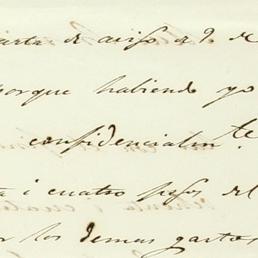 carta de aviso a 9 de
porque habiendo yo
confidencialmte
ta i cuatro pesos del
or los demas gastos